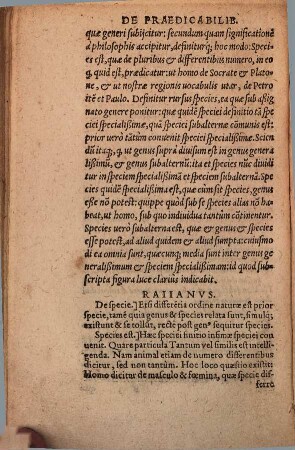 DE PRÆDICABILIB.
quæ generi subijcitur: secundum quam significationē
à philosophis accipitur, definiturq; hoc modo: Speci-
es est, quæ de pluribus & differentibus numero, in eo
q̨ quid est, prædicatur: ut homo de Socrate & Plato-
ne, & ut nostræ regionis uocabulis utar, de Petro
et Paulo. Definitur rursus species, ea quæ sub aßig-
nato genere ponitur: quæ quidē definitio tā spe
ciei specialißimæ, quā speciei subalternæ cōmunis est:
prior uerò tātùm conuenit speciei specialißimæ. Sciē
dū itaq;, q ut genus supra diuisum est in genus genera
lißimū, & genus subalternū: ita et species nūc diuidi
tur in speciem specialißimā et speciem subalternā. Spe
cies quidē specialißima est, quæ cùm sit species, genus
esse nō potest: quippe quod sub se species alias nō ha-
beat, ut homo, sub quo indiuidua tantùm cōtinentur.
Species uerò subalterna est, quæ & genus & species
esse potest, ad aliud quidem et aliud sumpta: cuiusmo
di ea omnia sunt, quæcunq; media sunt inter genus ge
neralißimum & speciem specialißimam: id quod sub-
scripta figura luce clarius indicabit.
RAIIANVS.
De specie.] Etsi differētia ordine naturæ est prior
specie, tamē quia genus & species relata sunt, simulq;
existunt & se tollūt, rectè post gen⁹ sequitur species.
Species est.] Hæc speciei finitio infimæ speciei con
uenit. Quare particula Tantum vel similis est intelli-
genda. Nam animal etiam de numero differentibus
dicitur, sed non tantùm. Hoc loco quæstio existit:
Homo dicitur de masculo & fœmina, quæ specie dif
ferre